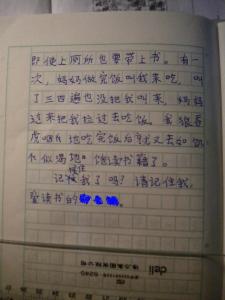 即使上厕所也要带上书。有一
次，妈妈做完饭叫我来吃，叫
了三四遍也没把我叫来，妈妈
过来把我拉过去吃饭。我狼吞
虎咽地吃完饭后就又去如饥
似渴地饱读书籍了。
记住我了吗？请记住我，
爱读书的
deli
6240